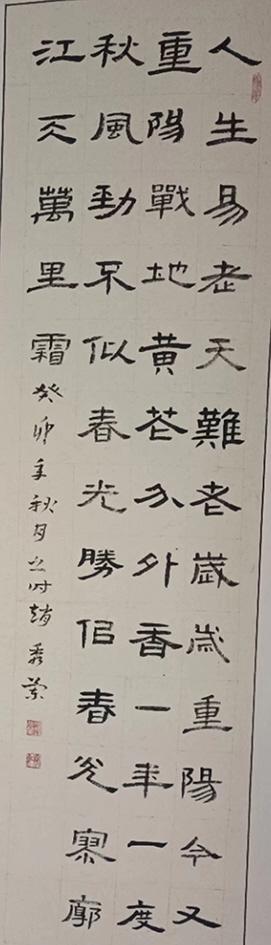 人生易老天難老歲歲重陽今又
重陽戰地黃花分外香一年一度
秋風勁不似春光勝似春光寥廓
江天萬里霜癸卯年秋月之时趙秀